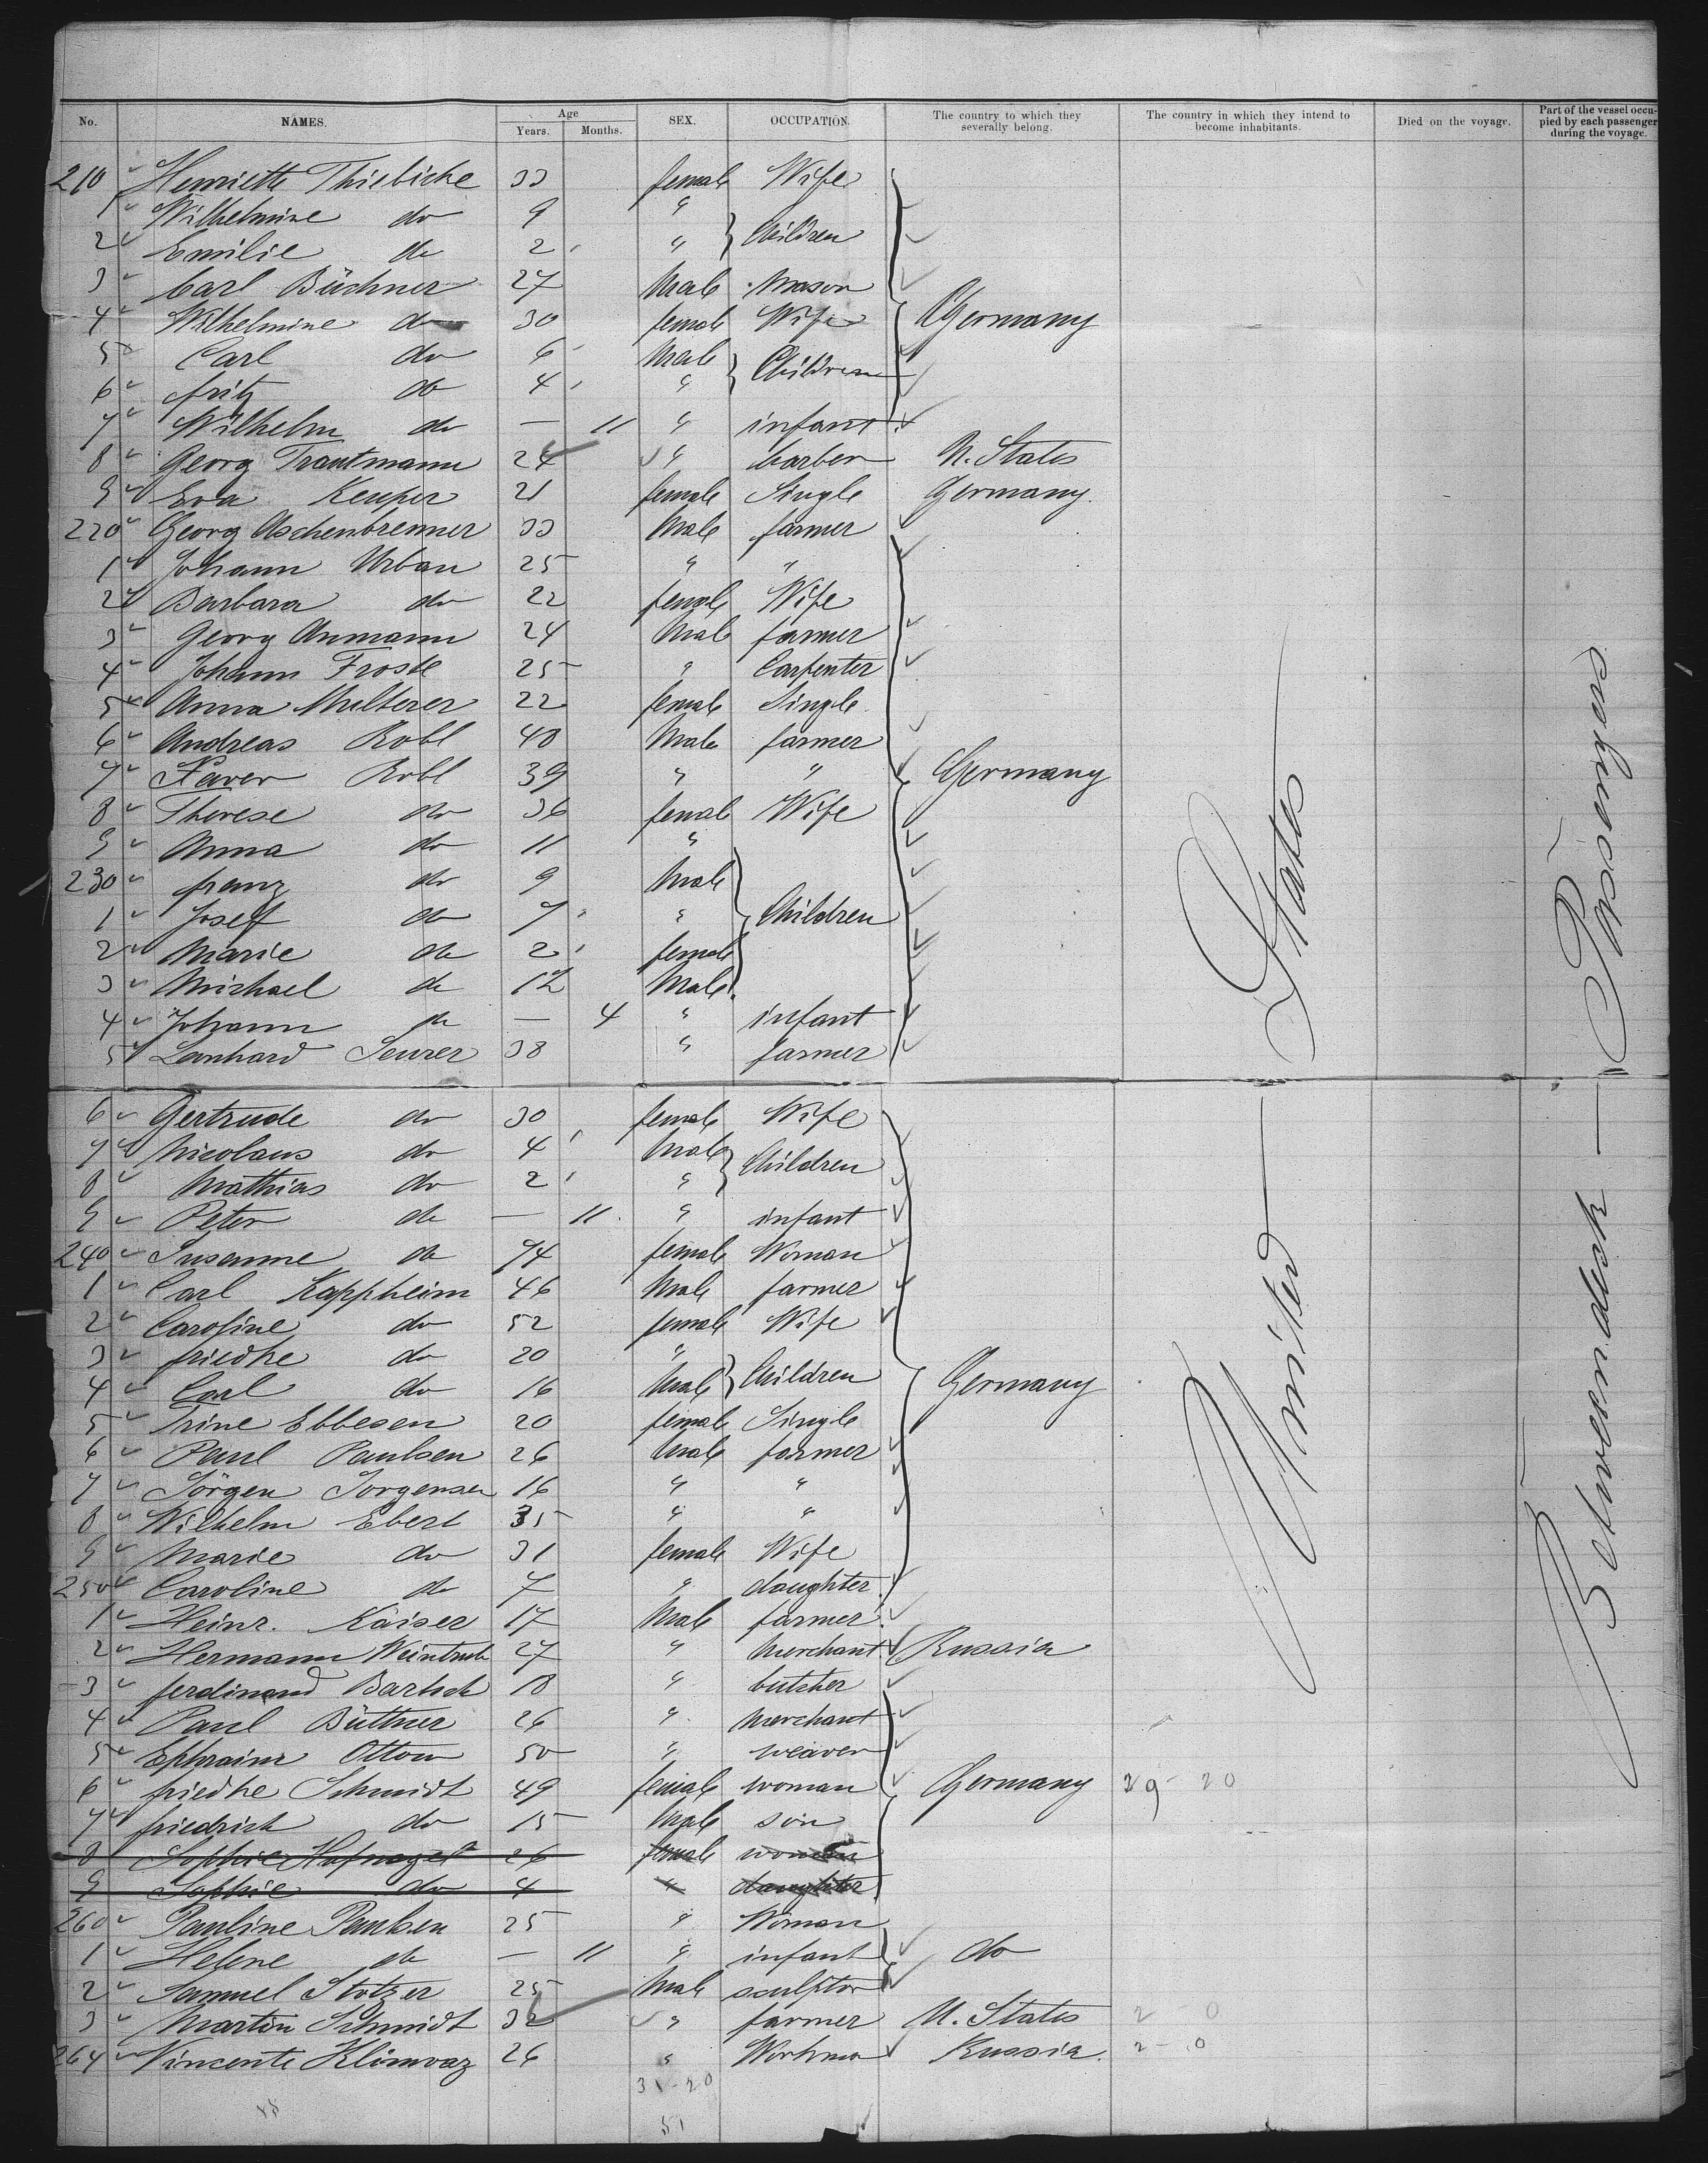 No. NAMES. Age Years. Months. SEX. OCCUPATION. The country to which they severally belong. The country in which they intend to become inhabitants. Died on the voyage. Part of the vessel occupied by each passenger during the voyage.
210 Henriette Thiebicke 33 female Wife
1 Wilhelmine do 9 "
2 Emilie do 2 " Children
3 Carl Büchner 27 Male Mason
4 Wilhelmine do 30 female Wife Germany
5 Carl do 6 Male Children
6 fritz do 4 "
7 Wilhelm do — 11 " infant
8 Georg Trautmann 24 " barber U. States
9 Eva Keuper 21 female Single Germany
220 Georg Aschenbrenner 33 Male farmer
1 Johann Urban 25 " "
2 Barbara do 22 female Wife
3 Georg Aumann 24 Male farmer
4 Johann 25 " Carpenter
5 Anna Multerer 22 female Single
6 Andreas Robl 40 Male farmer
7 Xaver Robl 39 " " Germany
8 Therese do 36 female Wife
9 Anna do 11 "
230 franz do 9 Male
1 Josef do 7 " Children
2 Marie do 2 female
3 Michael do 12 Male
4 Johann do — 4 " infant
5 Leonhard Seurer 38 " farmer
6 Gertrude do 30 female Wife
7 Nicolaus do 4 Male Children
8 Mathias do 2 "
9 Peter do — 11 " infant
240 Susanne do 74 female Woman
1 Carl Kappheim 46 Male farmer
2 Caroline do 52 female Wife
3 friedke do 20 " Children
4 Carl do 16 Male Germany
5 Trine Ebbesen 20 female Single
6 Paul Paulsen 26 Male farmer
7 Jörgen Jorgensen 16 " "
8 Wilhelm Ebert 35 " "
9 Marie do 31 female Wife
250 Caroline do 7 " daughter
1 Heinr. Kaiser 17 Male farmer
2 Hermann Weintraub 27 " Merchant Russia
3 ferdinand Bartsch 18 " butcher
4 Paul Büttner 26 " Merchant
5 Ephraim Ottow 50 " weaver
6 friedke Schmidt 49 female woman Germany 29 - 20
7 friedrich do 15 Male son
8 Sophie Hafnagel 26 female woman
9 Sophie do 4 " daughter
260 Pauline Paulsen 25 " Woman
1 Helene do — 11 " infant do
2 Samuel Stotzer 25 Male sculptor
3 Martin Schmidt 32 " farmer U. States 2 - 0
264 Vincente Klimvaz 26 " Workman Russia 2 - 0
31 - 20
51
United States
Between deck — Passengers